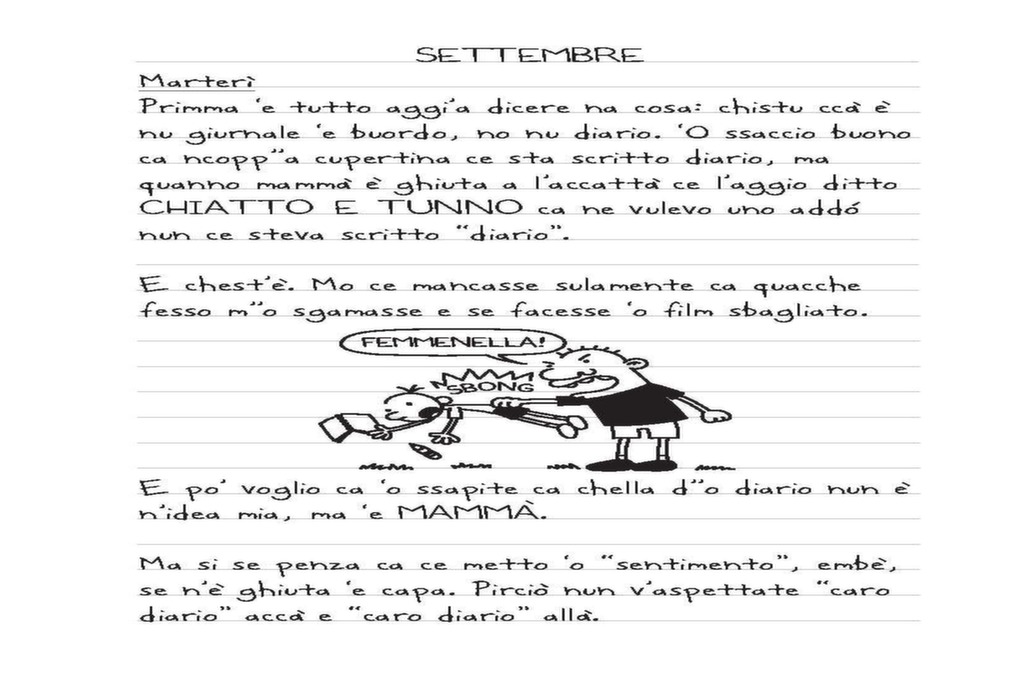 SETTEMBRE
Marterì
Primma 'e tutto aggi'a dicere na cosa: chistu ccà è
nu giurnale 'e buordo, no nu diario. 'O ssaccio buono
ca ncopp''a cupertina ce sta scritto diario, ma
quanno mammà è ghiuta a l'accattà ce l'aggio ditto
CHIATTO E TUNNO ca ne vulevo uno addó
nun ce steva scritto "diario".
E chest'è. Mo ce mancasse sulamente ca quacche
fesso m''o sgamasse e se facesse 'o film sbagliato.
FEMMENELLA!
SBONG
E po' voglio ca 'o ssapite ca chella d''o diario nun è
n'idea mia, ma 'e MAMMÀ.
Ma si se penza ca ce metto 'o "sentimento", embè,
se n'è ghiuta 'e capa. Pirciò nun v'aspettate "caro
diario" accà e "caro diario" allà.